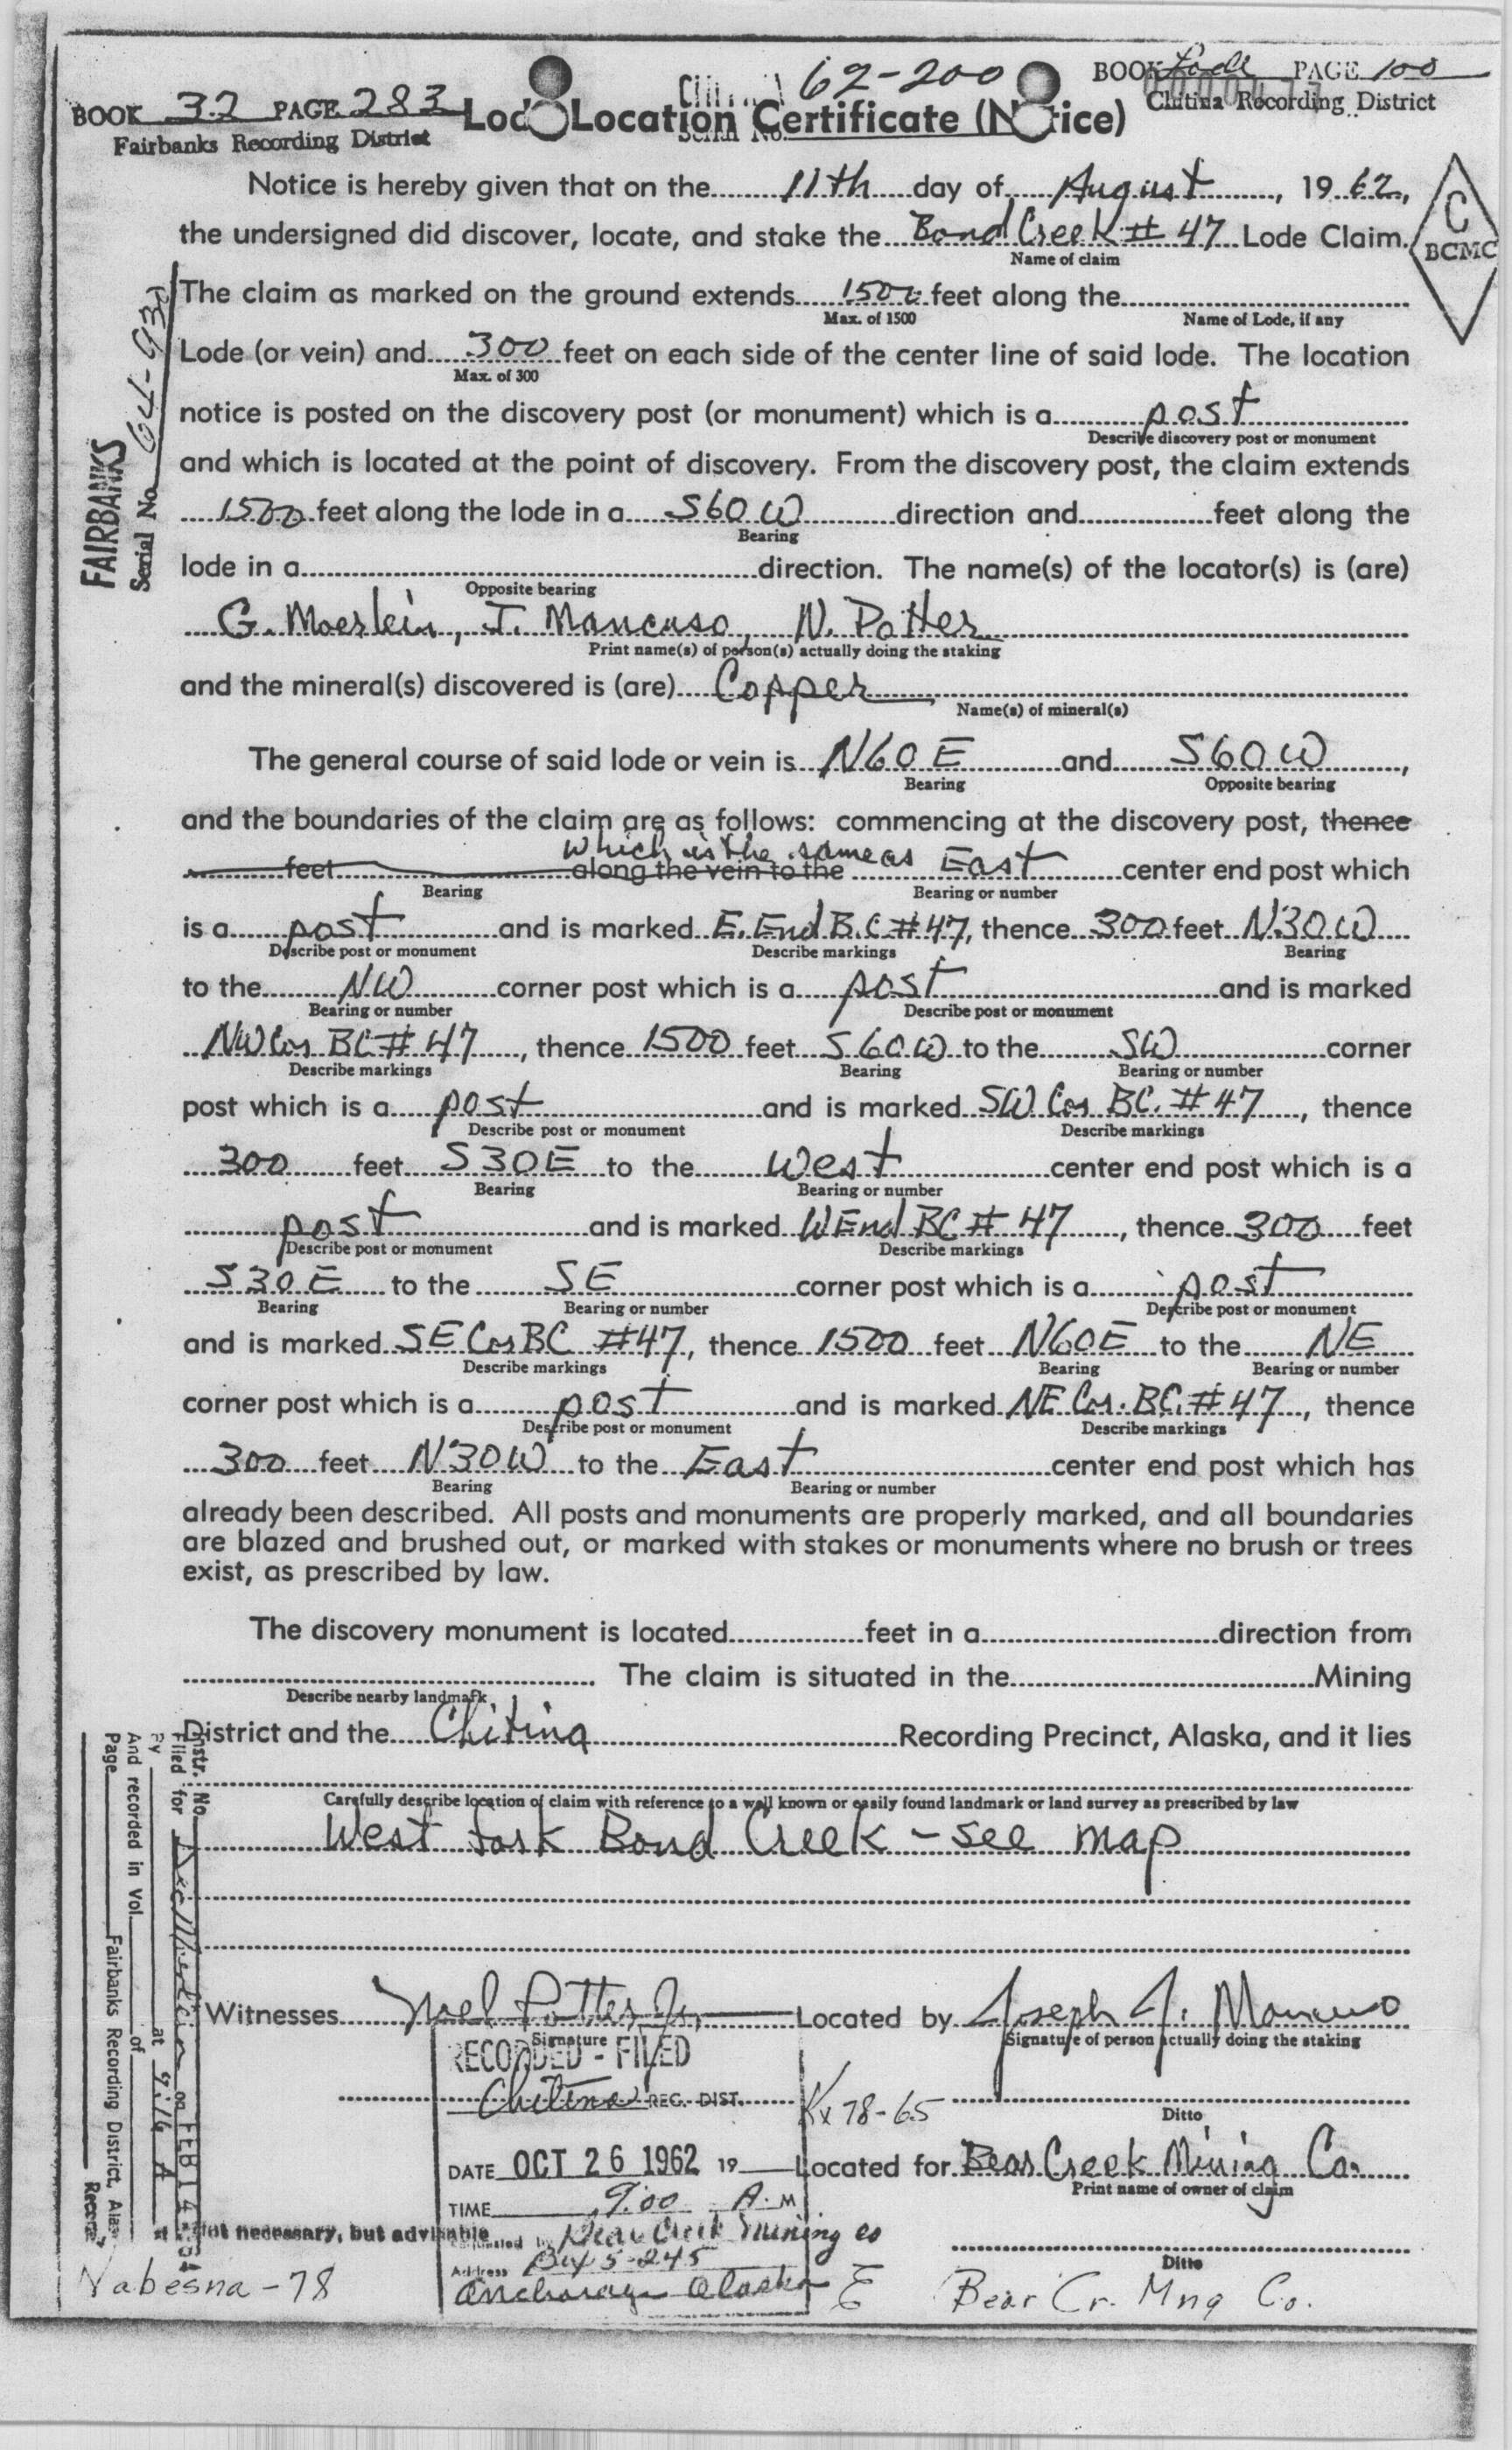 BOOK 32 PAGE 283
Fairbanks Recording District
Chitina 62-200
Serial No.
BOOK Lode PAGE 100
Chitina Recording District
Lode Location Certificate (Notice)
C
BCMC
Notice is hereby given that on the 11th day of August, 1962,
the undersigned did discover, locate, and stake the Bond Creek # 47 Lode Claim.
Name of claim
The claim as marked on the ground extends 1500 feet along the
Max. of 1500 Name of Lode, if any
Lode (or vein) and 300 feet on each side of the center line of said lode. The location
Max. of 300
notice is posted on the discovery post (or monument) which is a post
Describe discovery post or monument
and which is located at the point of discovery. From the discovery post, the claim extends
1500 feet along the lode in a S60W direction and feet along the
Bearing
lode in a direction. The name(s) of the locator(s) is (are)
Opposite bearing
G. Moerlein, J. Mancuso, N. Potter
Print name(s) of person(s) actually doing the staking
and the mineral(s) discovered is (are) Copper
Name(s) of mineral(s)
The general course of said lode or vein is N60E and S60W,
Bearing Opposite bearing
and the boundaries of the claim are as follows: commencing at the discovery post, thence
which is the same as
feet along the vein to the East center end post which
Bearing Bearing or number
is a post and is marked E. End B.C #47, thence 300 feet N30W
Describe post or monument Describe markings Bearing
to the NW corner post which is a post and is marked
Bearing or number Describe post or monument
NW Cor BC # 47, thence 1500 feet S60W to the SW corner
Describe markings Bearing Bearing or number
post which is a post and is marked SW Cor BC. # 47, thence
Describe post or monument Describe markings
300 feet S30E to the West center end post which is a
Bearing Bearing or number
post and is marked W End BC # 47, thence 300 feet
Describe post or monument Describe markings
S30E to the SE corner post which is a post
Bearing Bearing or number Describe post or monument
and is marked SE Cor BC #47, thence 1500 feet N60E to the NE
Describe markings Bearing Bearing or number
corner post which is a post and is marked NE Cor. BC. #47, thence
Describe post or monument Describe markings
300 feet N30W to the East center end post which has
Bearing Bearing or number
already been described. All posts and monuments are properly marked, and all boundaries
are blazed and brushed out, or marked with stakes or monuments where no brush or trees
exist, as prescribed by law.
The discovery monument is located feet in a direction from
. The claim is situated in the Mining
Describe nearby landmark
District and the Chitina Recording Precinct, Alaska, and it lies
Carefully describe location of claim with reference to a well known or easily found landmark or land survey as prescribed by law
West fork Bond Creek - see map
Witnesses Noel Potter Jr. Located by Joseph J. Mancuso
Signature Signature of person actually doing the staking
RECORDED - FILED
Chitina REC. DIST.
Kx 78-65
Ditto
DATE OCT 26 1962 19
Located for Bear Creek Mining Co.
Print name of owner of claim
TIME 9:00 A. M
Not necessary, but advisable
Bear Creek Mining co
Address Box 5-245
Anchorage Alaska
Ditto
E
Nabesna - 78
Bear Cr. Mng Co.
FAIRBANKS
Serial No.
Instr. No.
Filed for
By at 9:16 A
And recorded in Vol. of
Page Fairbanks Recording District, Alas